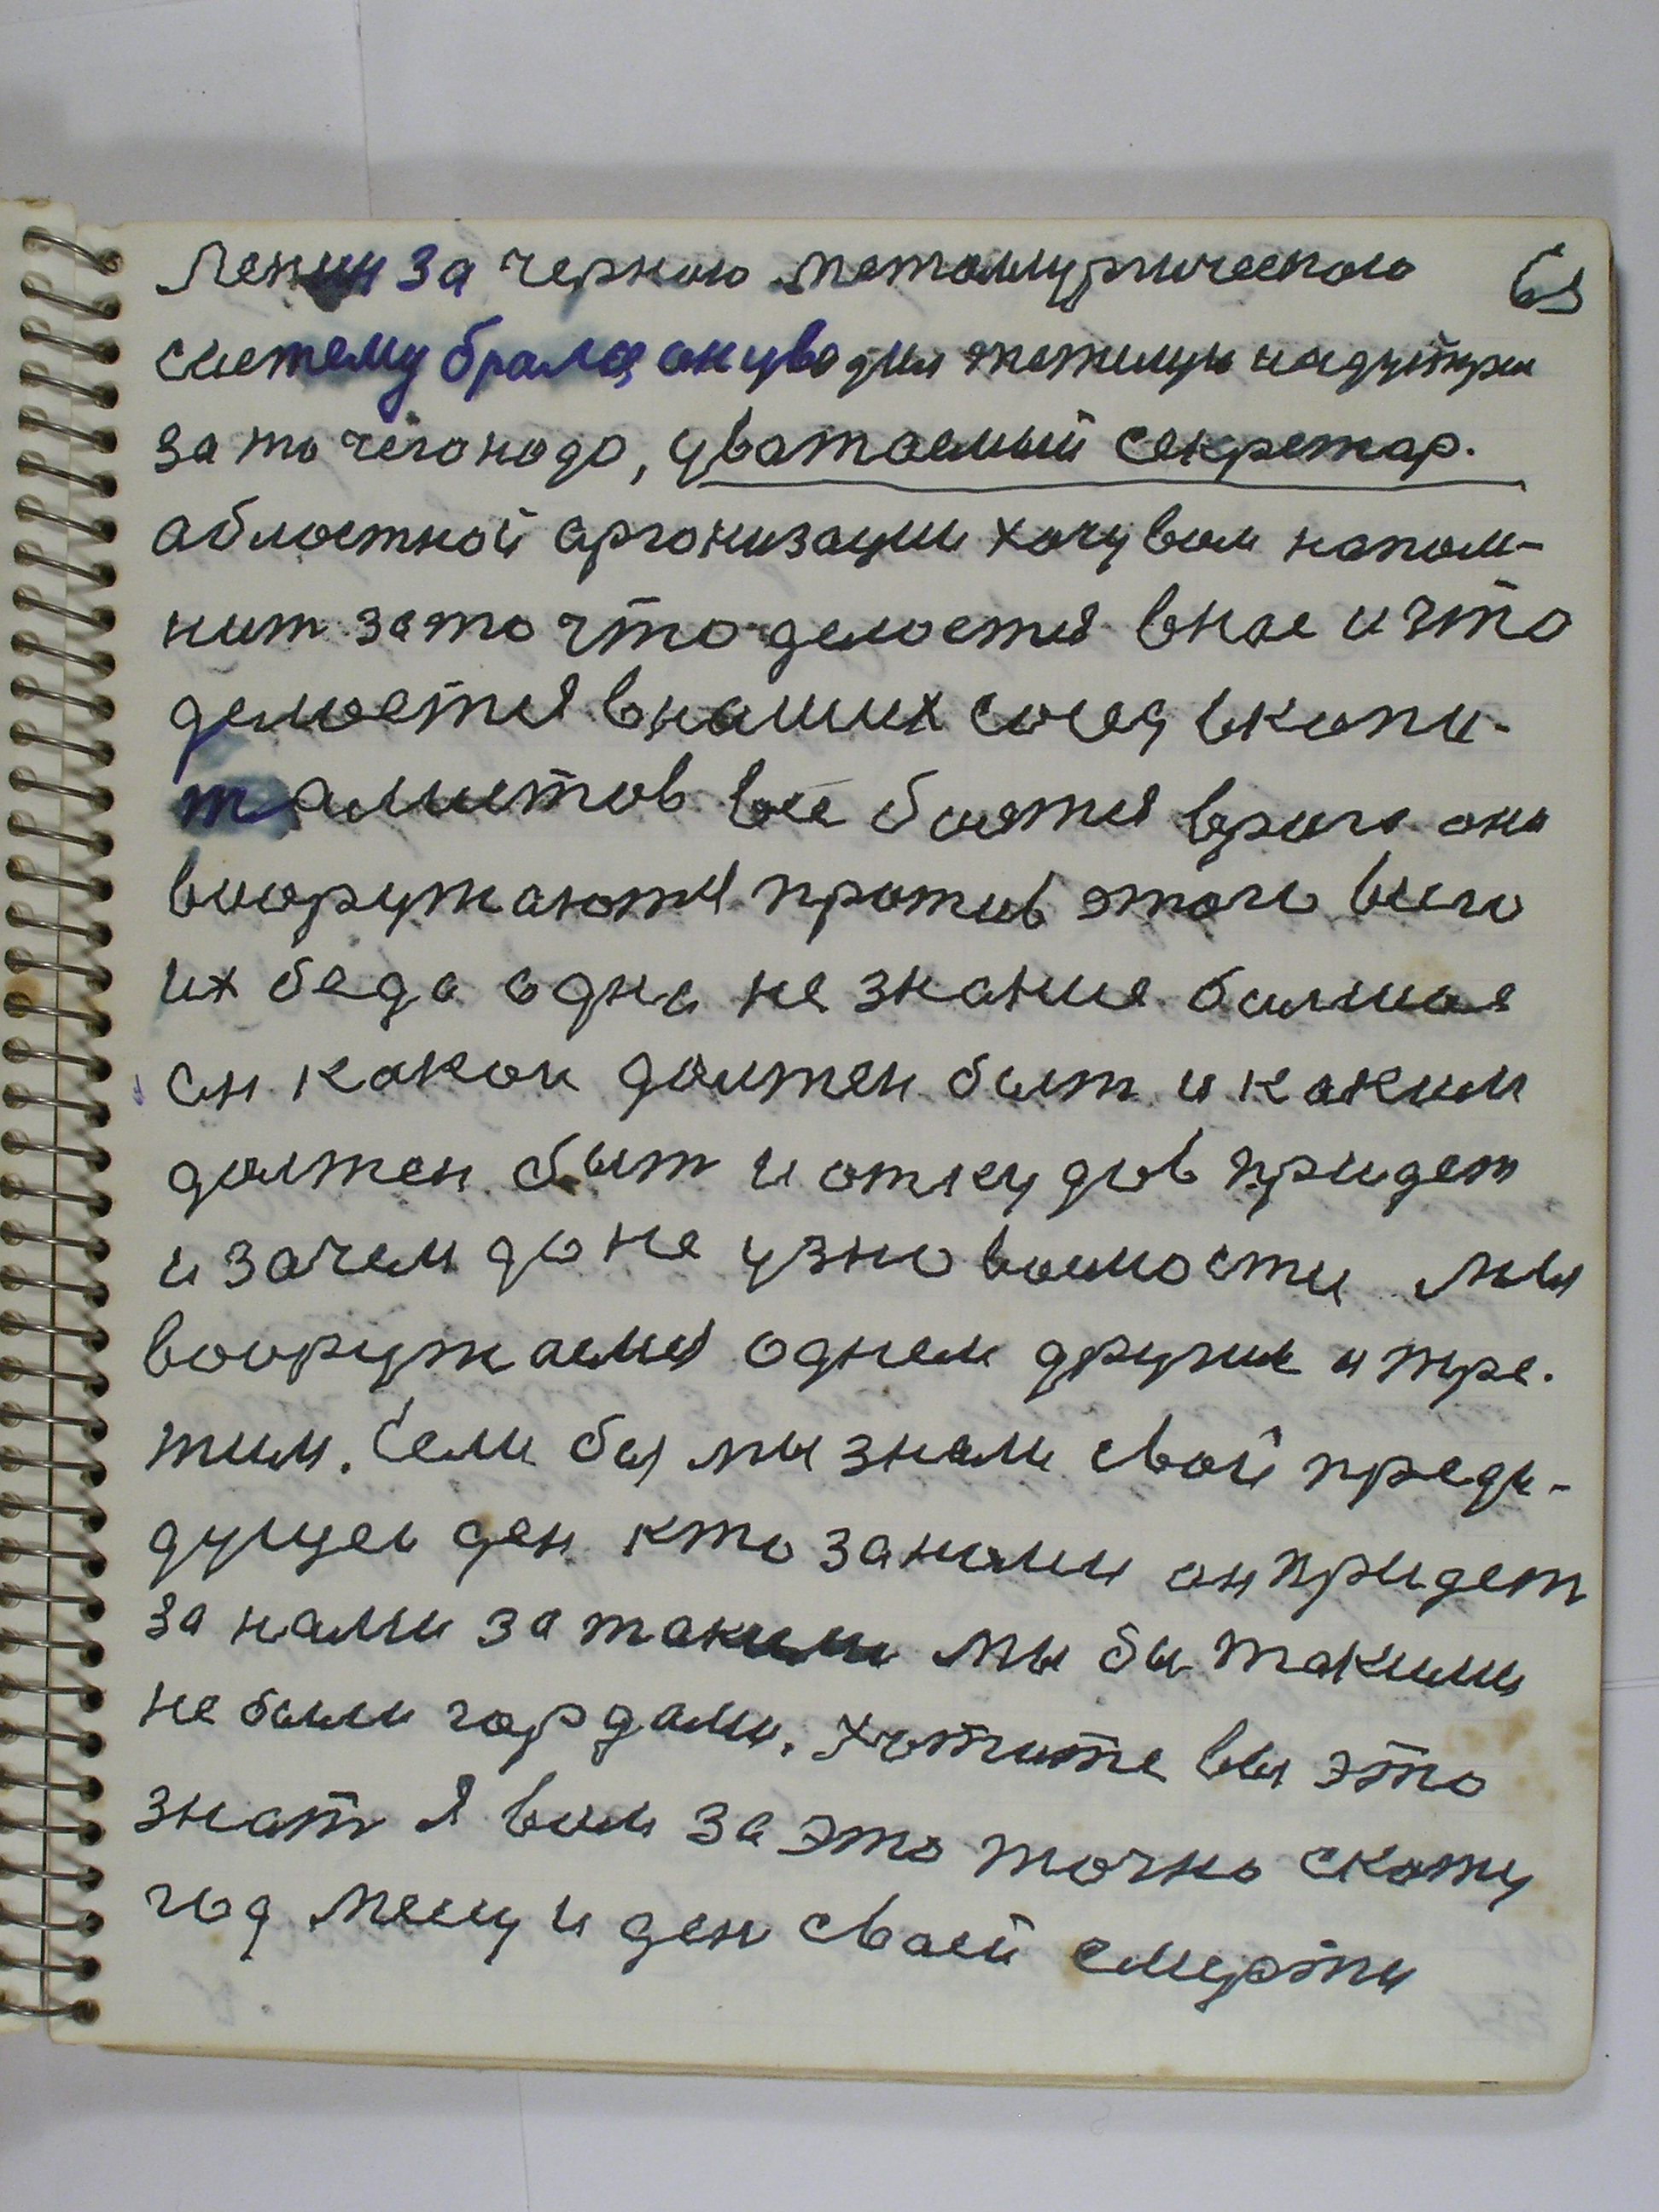 Ленин за черною металлургическою 63
систему брался, он уводил тяжелую индустрия
за то чего надо, уважаемый секретар.
аблостной организации хочу вам напом-
нит за то что делается в нас и что
делается в наших соседу капи-
талистов все боятся врага они
вооружаются против этого всего
их беда одна не знание большая
он каков должен быт и каким
должен быт и откудов придет
и зачем до не узноваимости мы
вооружаемся однем другим и тре-
тим. Если бы мы знали свой преды-
дущей ден кто за нами он придет
за нами за такими мы бы такими
не были гордами. Хотите вы это
знат Я вам за это точно скажу
год месяц и ден своей смерти